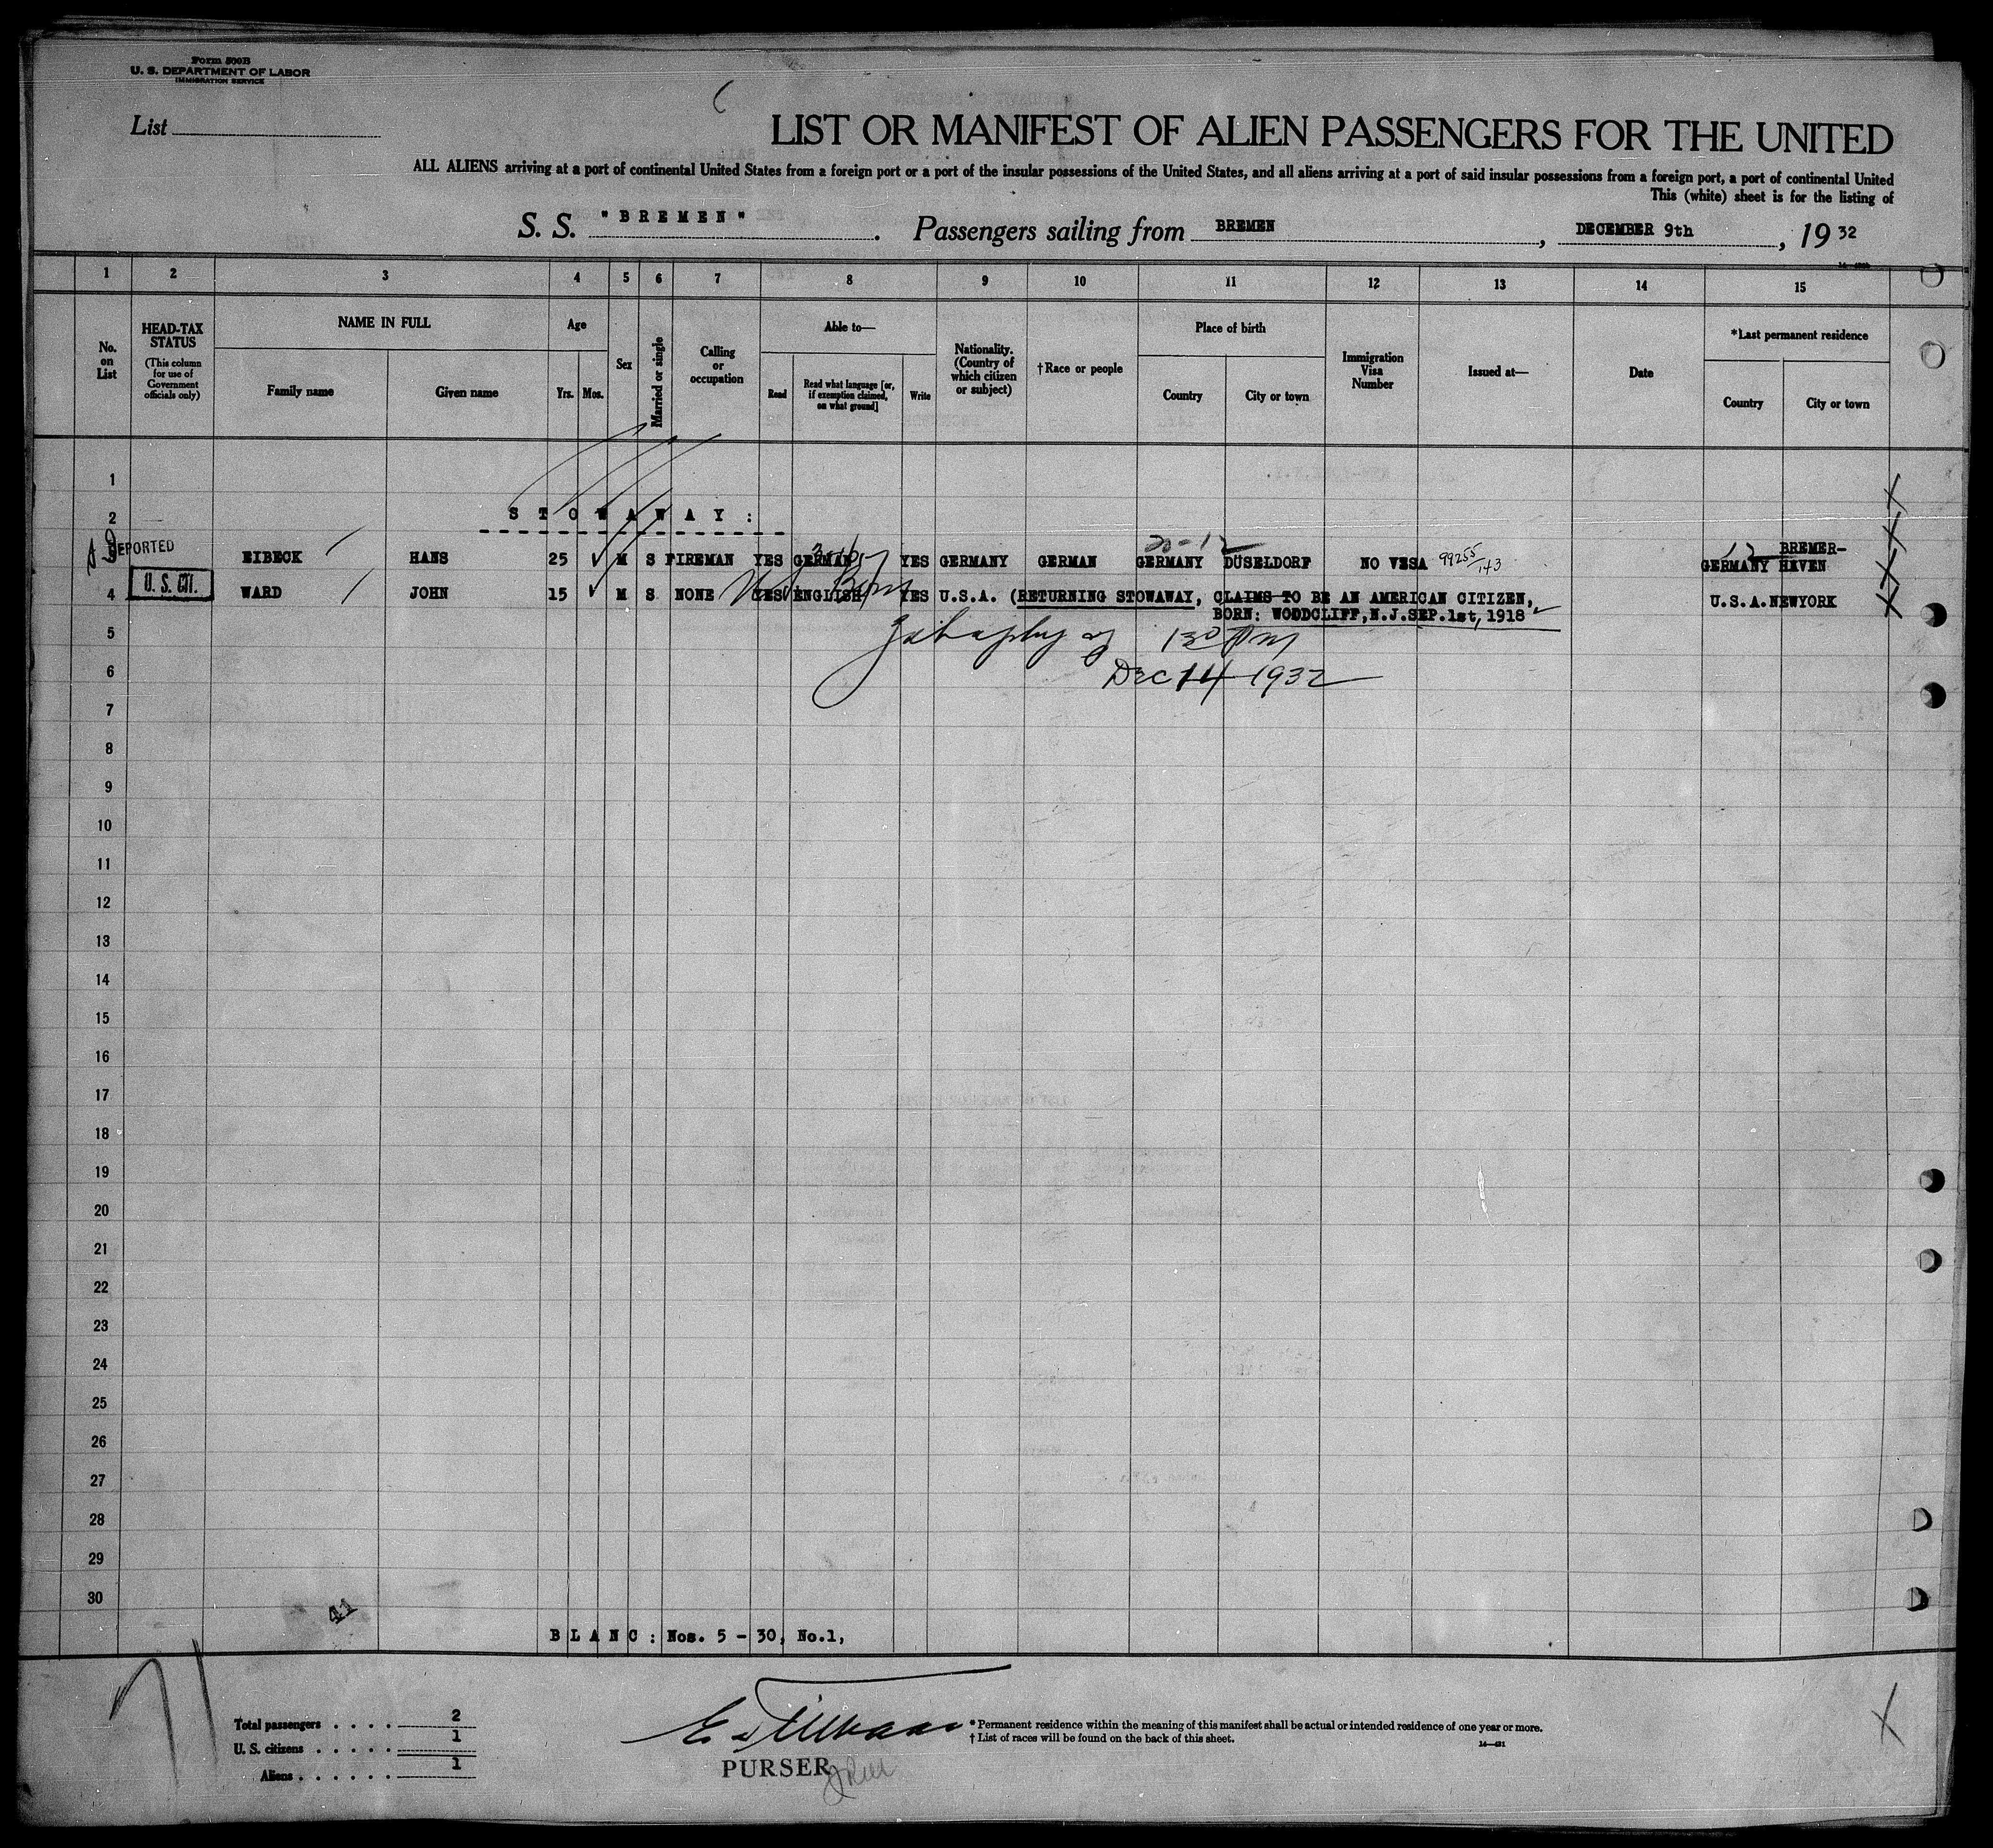 Form 500B
U. S. DEPARTMENT OF LABOR
IMMIGRATION SERVICE
List
LIST OR MANIFEST OF ALIEN PASSENGERS FOR THE UNITED
ALL ALIENS arriving at a port of continental United States from a foreign port or a port of the insular possessions of the United States, and all aliens arriving at a port of said insular possessions from a foreign port, a port of continental United
This (white) sheet is for the listing of
S. S. "BREMEN". Passengers sailing from BREMEN, DECEMBER 9th, 1932
1 2 3 4 5 6 7 8 9 10 11 12 13 14 15
No. on List
HEAD-TAX STATUS
(This column for use of Government officials only)
NAME IN FULL
Family name
Given name
Age
Yrs.
Mos.
Sex
Married or single
Calling or occupation
Able to—
Read
Read what language [or, if exemption claimed, on what ground]
Write
Nationality. (Country of which citizen or subject)
†Race or people
Place of birth
Country
City or town
Immigration Visa Number
Issued at—
Date
*Last permanent residence
Country
City or town
1
2 STOWAWAY:
DEPORTED EIBECK HANS 25 M S FIREMAN YES GERMAN YES GERMANY GERMAN GERMANY DÜSELDORF NO VESA 99255/143 GERMANY BREMER-HAVEN
4 U. S. CIT. WARD JOHN 15 M S NONE YES ENGLISH YES U.S.A. (RETURNING STOWAWAY, CLAIMS TO BE AN AMERICAN CITIZEN, U.S.A. NEWYORK
BORN: WODDCLIFF, N.J. SEP. 1st, 1918
5 130 Pm
6 Dec 14 1932
7
8
9
10
11
12
13
14
15
16
17
18
19
20
21
22
23
24
25
26
27
28
29
30
41
BLANC: Nos. 5 - 30, No.1,
71
Total passengers 2
U. S. citizens 1
Aliens 1
PURSER
* Permanent residence within the meaning of this manifest shall be actual or intended residence of one year or more.
† List of races will be found on the back of this sheet.